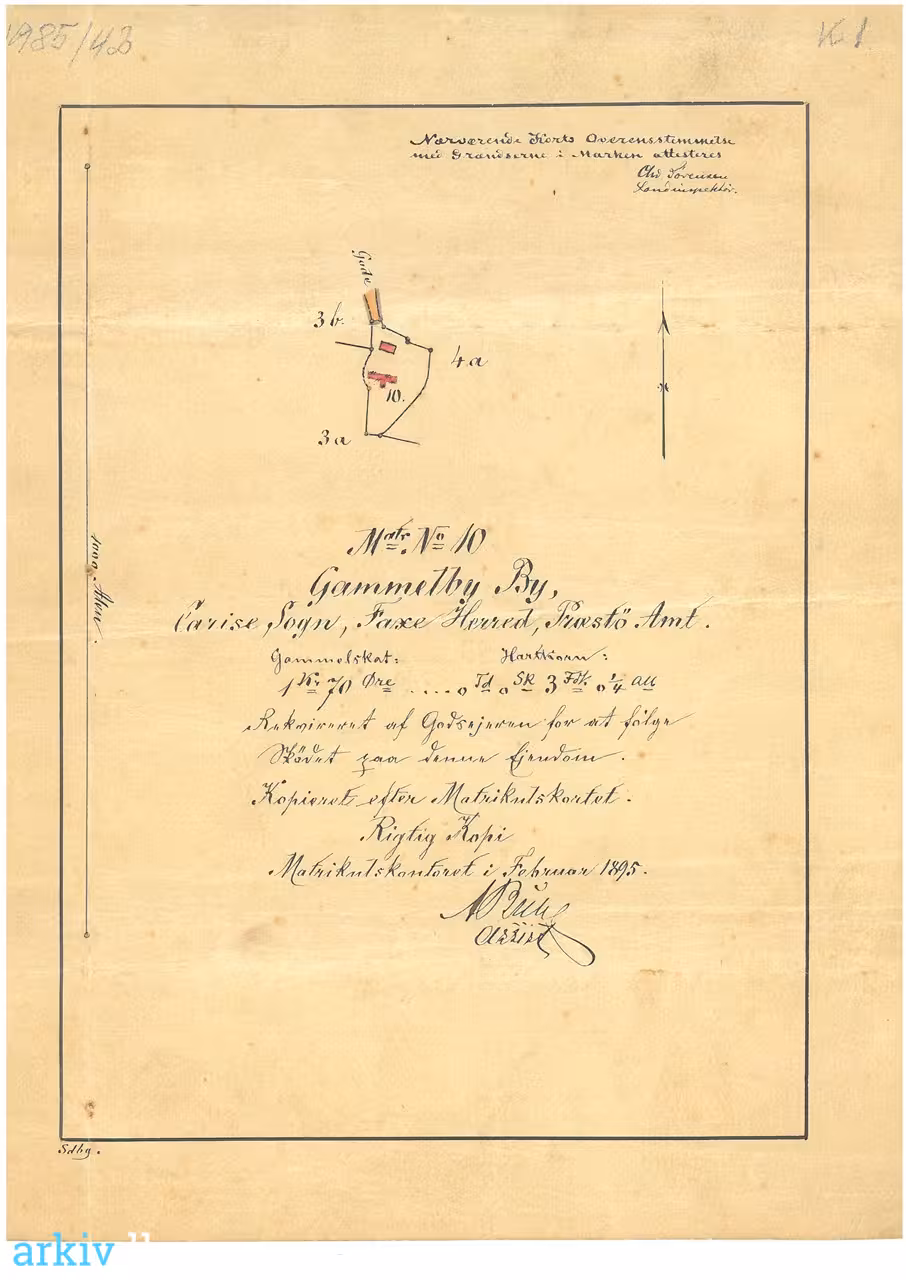 1985/43
K. 1
Nærværende Korts Overensstemmelse
med Grændserne i Marken attesteres
Chr Sörensen
Landinspektör.
Gade
3 b.
4 a
10.
3 a
1000 Alen.
Matr. No 10
Gammelby By,
Carise Sogn, Faxe Herred, Præstö Amt.
Gammelskat: Hartkorn:
1 Kr 70 Øre ..... 0 Td 0 Sk 3 Fdk. 0 1/4 Alb
Rekvireret af Godsejeren for at følge
Sködet paa denne Ejendom.
Kopieret efter Matrikulskortet.
Rigtig Kopi
Matrikulskontoret i Februar 1895.
Assist
Sdbg.
arkiv